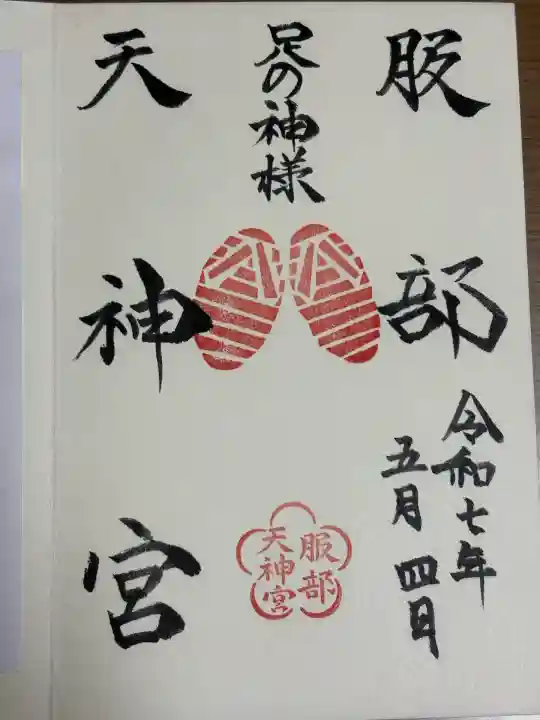 服部
令和七年
五月四日
足の神様
天神宮
服部
天神宮